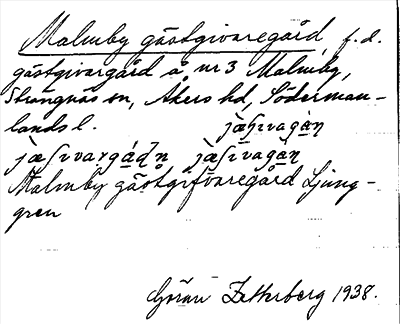 Malmby gästgivaregård, f.d.
gästgivargård å nr 3 Malmby,
Strängnäs sn, Åkers hd, Söderman-
lands l.
Malmby gästgifvaregård Ljung-
gren
Göran Zetterberg 1938.